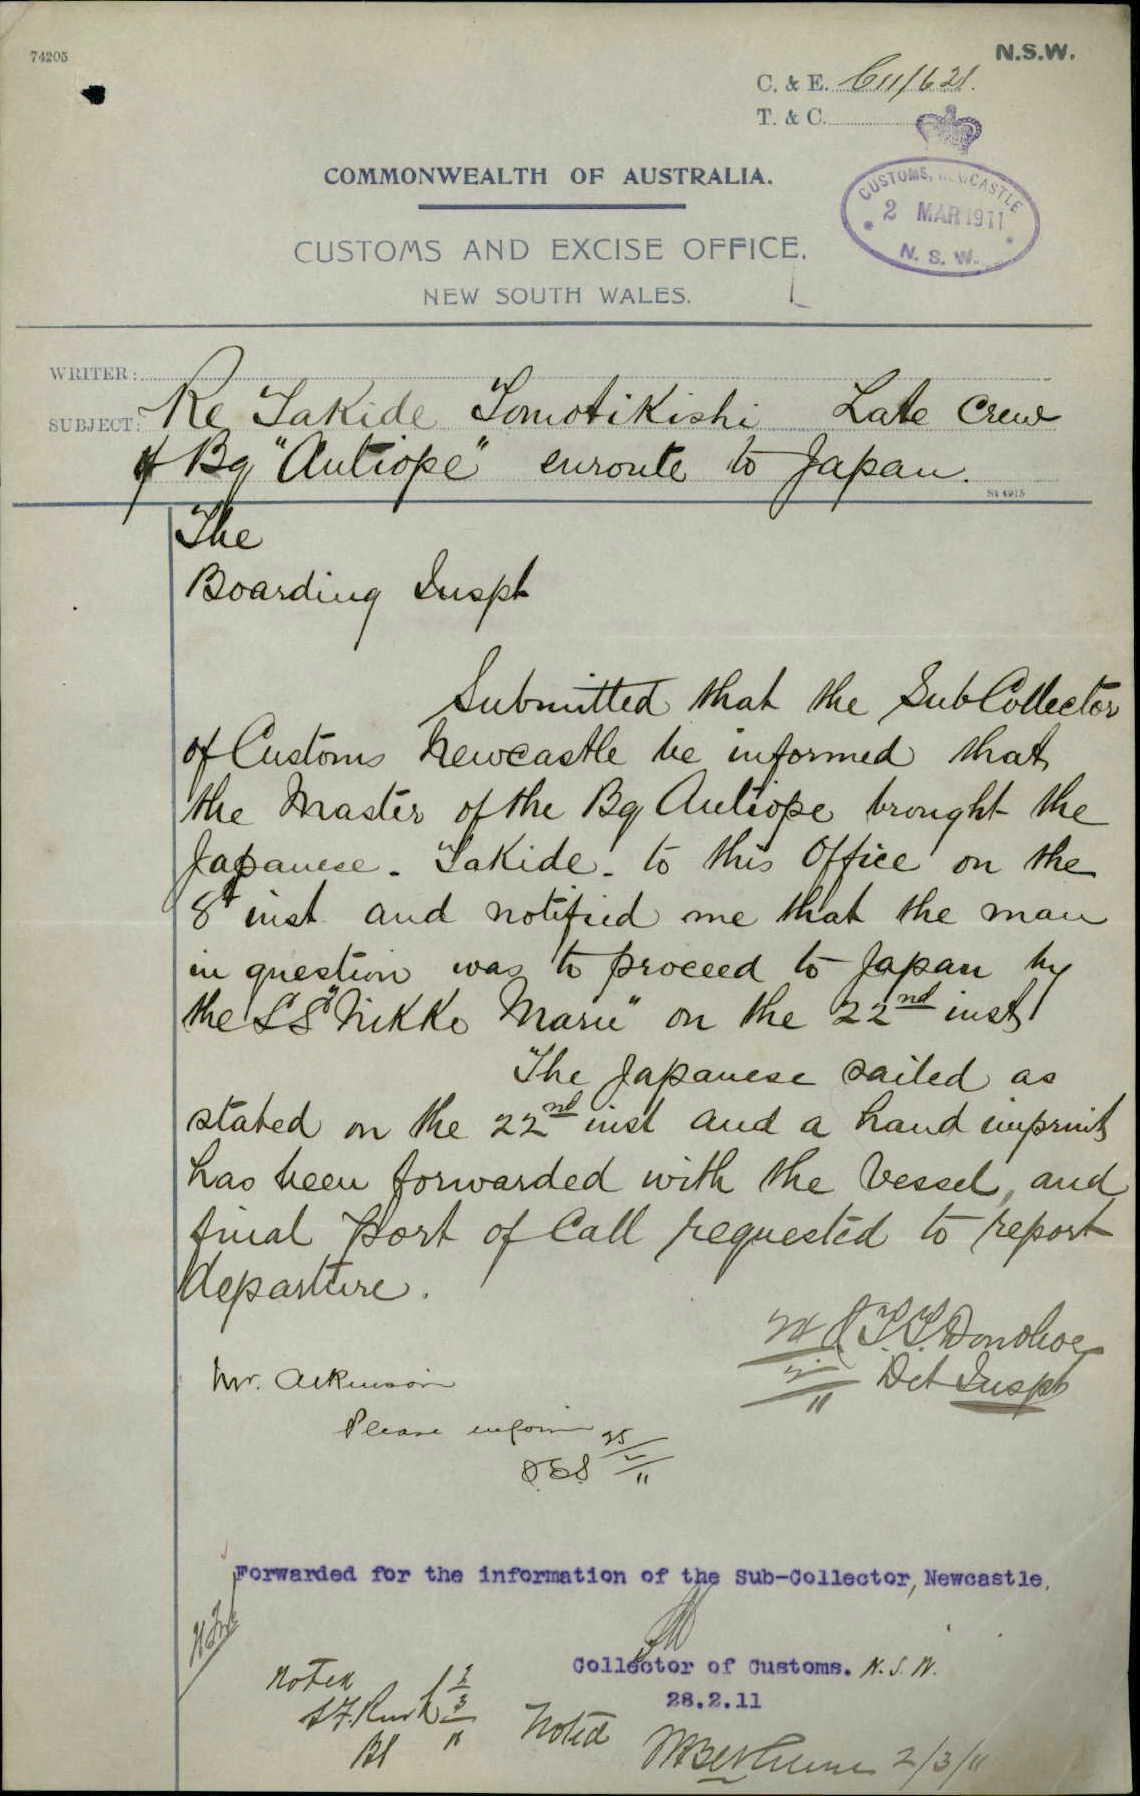 74205
N.S.W.
C. & E. C11/621.
T. & C.
CUSTOMS, NEWCASTLE
2 MAR 1911
N. S. W.
COMMONWEALTH OF AUSTRALIA.
CUSTOMS AND EXCISE OFFICE.
NEW SOUTH WALES.
WRITER:
SUBJECT: Re Takide Tomotikishi Late Crew
of Bq "Antiope" enroute to Japan.
St 4915
The
Boarding Inspt
Submitted that the SubCollector
of Customs Newcastle be informed that
the Master of the Bq Antiope brought the
Japanese - Takide - to this Office on the
8th inst and notified me that the man
in question was to proceed to Japan by
the SS "Nikko Maru" on the 22nd inst
The Japanese sailed as
stated on the 22nd inst and a hand imprint
has been forwarded with the Vessel, and
final port of Call requested to report
departure.
T.T. Donohoe
Det Inspt
Mr. Atkinson
Please inform 25/2/11
Forwarded for the information of the Sub-Collector, Newcastle.
Collector of Customs. N.S.W.
28.2.11
Noted
BI
Noted
2/3/11